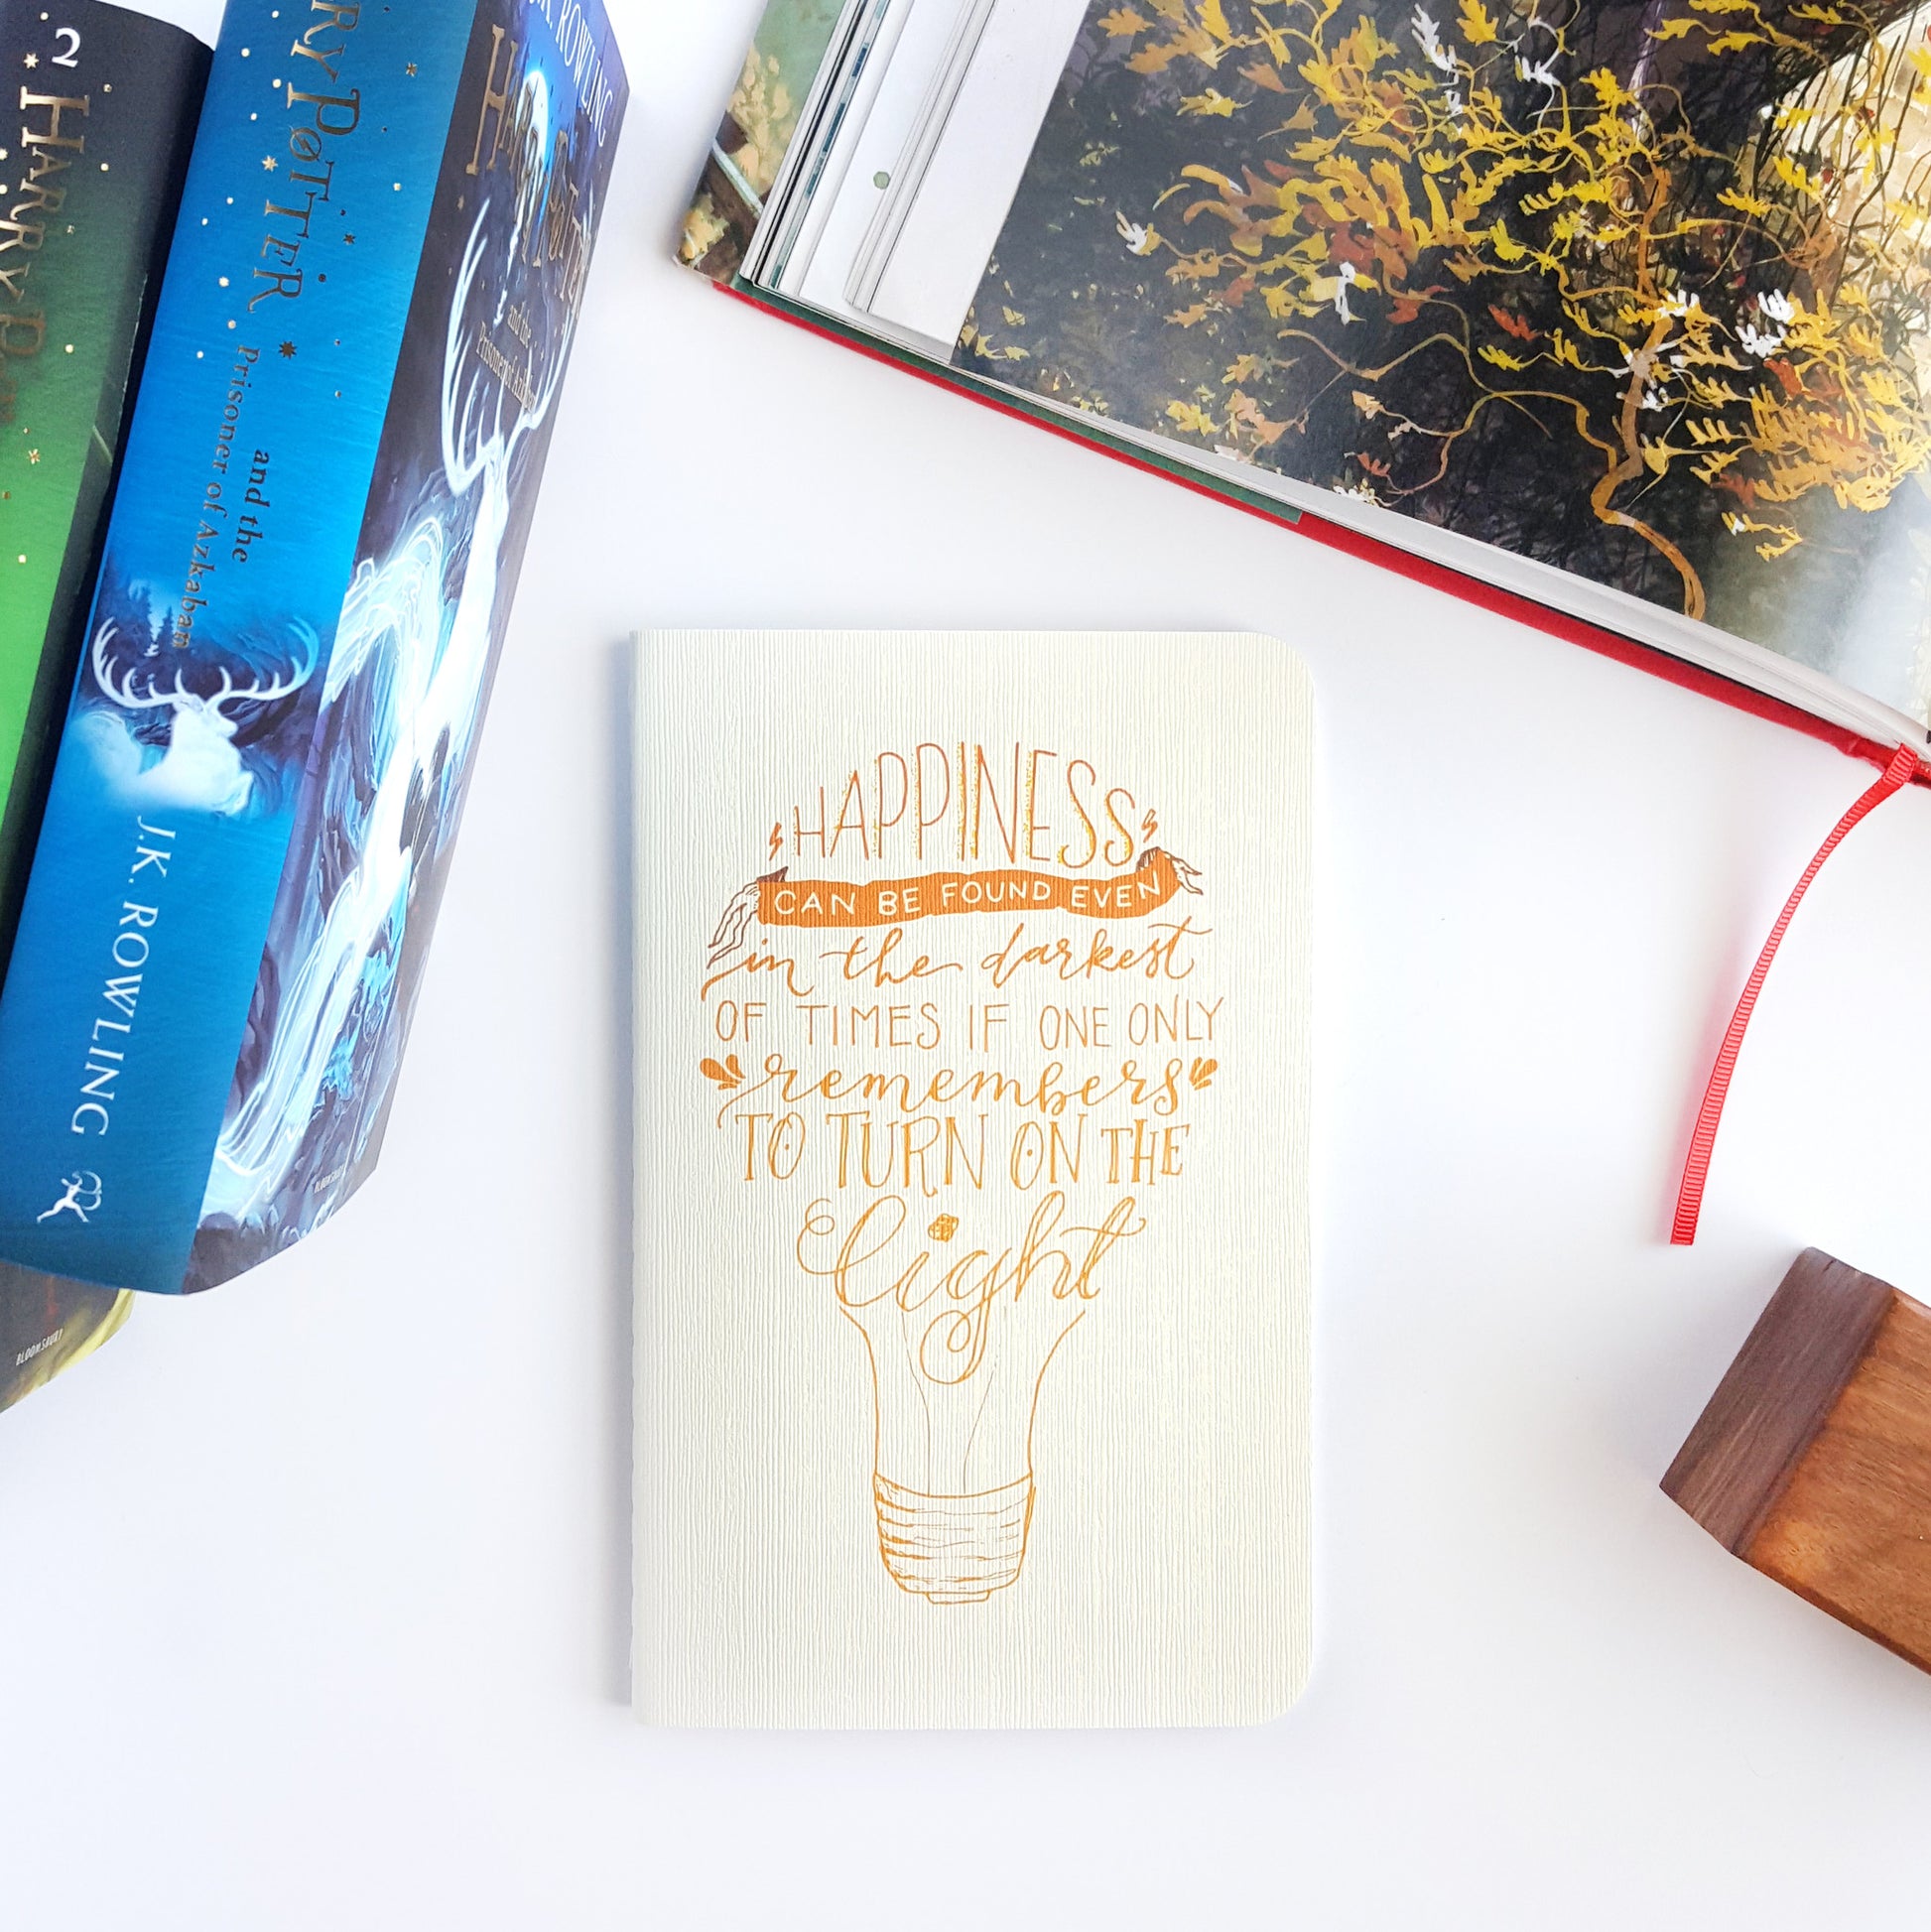 2
HARRY P
RRY POTTER
and the
Prisoner of Azkaban
J.K. ROWLING
BLOOMSBURY
J.K. ROWLING
and the
Prisoner of Azkaban
BLOOMSBURY
HAPPINESS
CAN BE FOUND EVEN
in the darkest
OF TIMES IF ONE ONLY
remembers
TO TURN ON THE
light